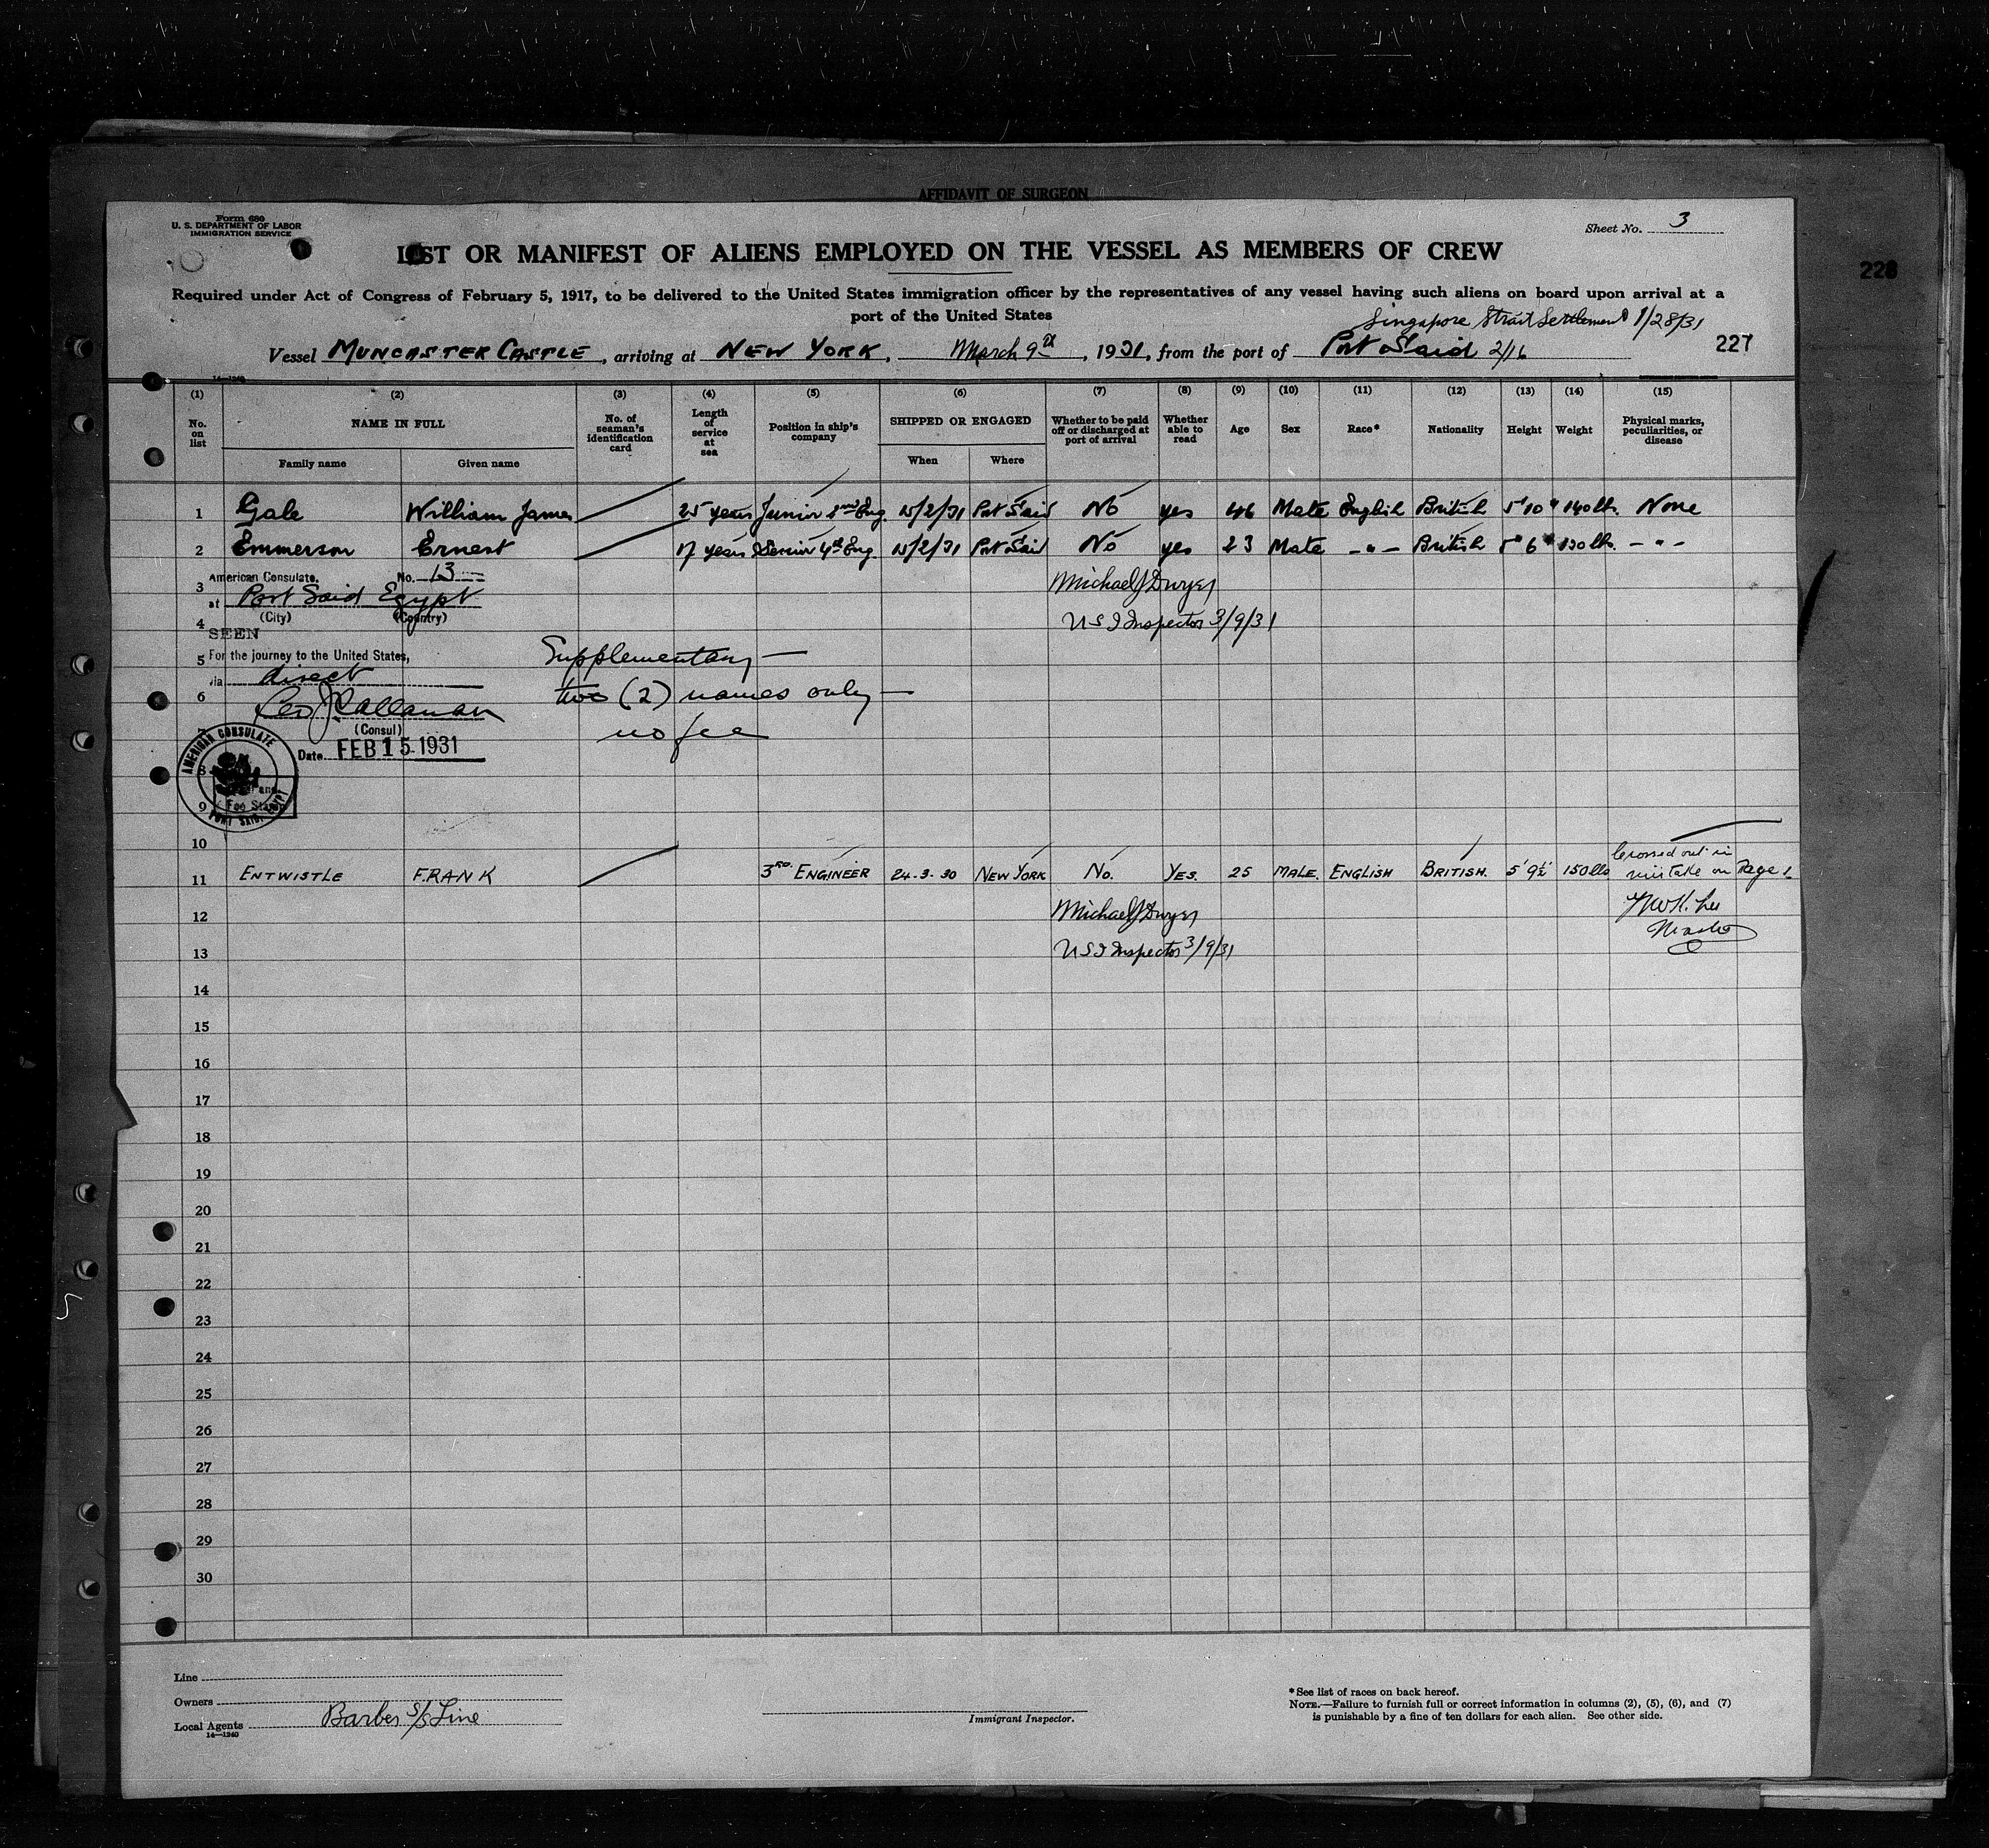 AFFIDAVIT OF SURGEON
Form 680
U. S. DEPARTMENT OF LABOR
IMMIGRATION SERVICE
Sheet No. 3
LIST OR MANIFEST OF ALIENS EMPLOYED ON THE VESSEL AS MEMBERS OF CREW
228
Required under Act of Congress of February 5, 1917, to be delivered to the United States immigration officer by the representatives of any vessel having such aliens on board upon arrival at a
port of the United States
Singapore Strait Settlement 1/28/31
Vessel MUNCASTER CASTLE, arriving at NEW YORK, March 9th, 1931, from the port of Port Said 2/16
227
14—1240
(1) (2) (3) (4) (5) (6) (7) (8) (9) (10) (11) (12) (13) (14) (15)
No. on list NAME IN FULL No. of seaman's identification card Length of service at sea Position in ship's company SHIPPED OR ENGAGED Whether to be paid off or discharged at port of arrival Whether able to read Age Sex Race* Nationality Height Weight Physical marks, peculiarities, or disease
Family name Given name When Where
1 Gale William James 25 years Junior 2nd Eng. 15/2/31 Port Said No yes 46 Male English British 5'10" 140 lb. None
2 Emmerson Ernest 17 years Senior 4th Eng. 15/2/31 Port Said No yes 23 Male —"— British 5'6" 130 lb. —"—
American Consulate, No. 13
3 Michael J Dwyer
at Port Said Egypt
(City) (Country)
4 USI Inspector 3/9/31
SEEN
5 For the journey to the United States,
Supplementary —
via direct
6 two (2) names only —
Leo J. Callanan
(Consul)
no fee
Date FEB 15 1931
AMERICAN CONSULATE
PORT SAID, EGYPT
8
9 Fee Stamp
10
11 ENTWISTLE FRANK 3RD. ENGINEER 24-3-30 NEW YORK No. YES. 25 MALE. ENGLISH BRITISH. 5'9½" 150 lbs Crossed out in mistake on Page 1.
12 Michael J Dwyer
Master
13 USI Inspector 3/9/31
14
15
16
17
18
19
20
21
22
23
24
25
26
27
28
29
30
Line
Owners
Local Agents Barber S/S Line
14—1240
Immigrant Inspector.
*See list of races on back hereof.
NOTE.—Failure to furnish full or correct information in columns (2), (5), (6), and (7)
is punishable by a fine of ten dollars for each alien. See other side.